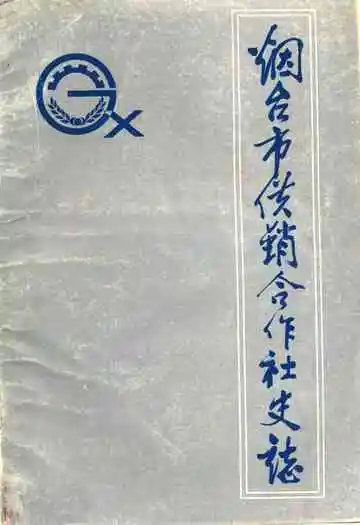 GX
烟台市供销合作社史誌